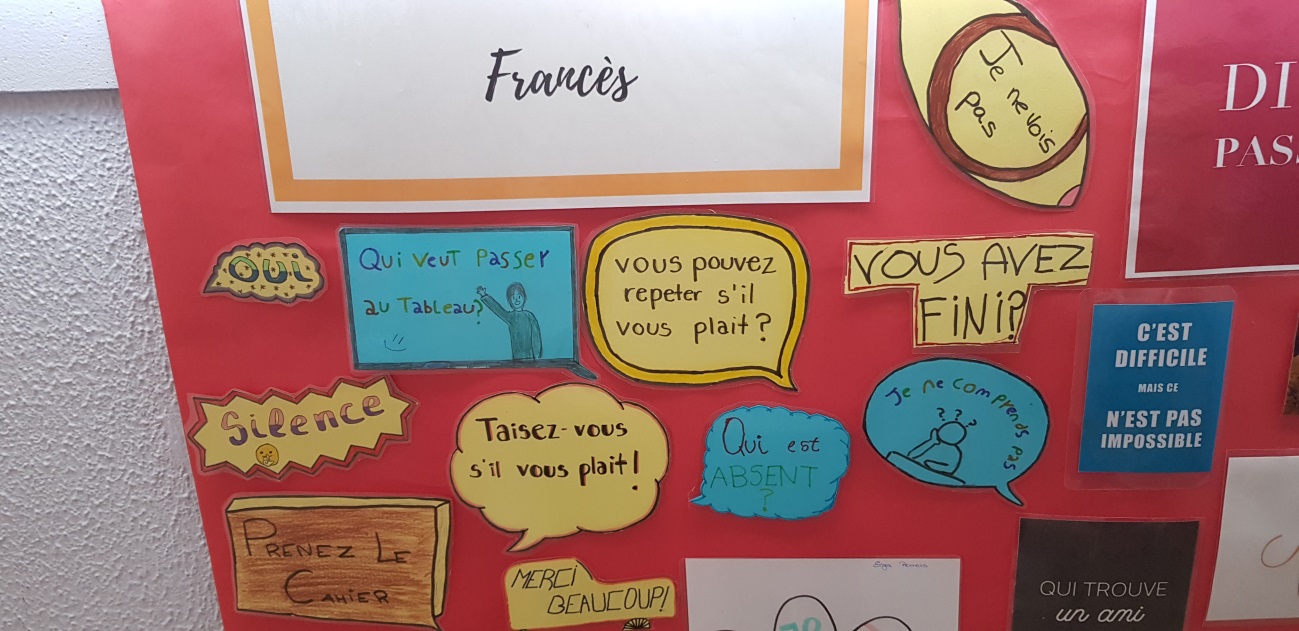 Francès
Je ne vois
pas
DI
PAS
OUI
Qui veut passer
au Tableau?
vous pouvez
repeter s'il
vous plait?
VOUS AVEZ
FINI?
C'EST
DIFFICILE
MAIS CE
N'EST PAS
IMPOSSIBLE
Silence
Taisez-vous
s'il vous plait!
Qui est
ABSENT
?
Je ne comprends pas
? ?
PRENEZ LE
CAHIER
MERCI
BEAUCOUP!
QUI TROUVE
un ami